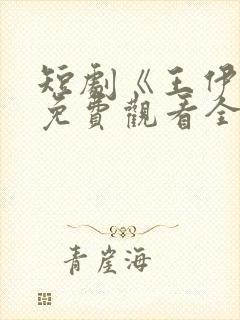 短劇《王伊
免費觀看全
青崖海